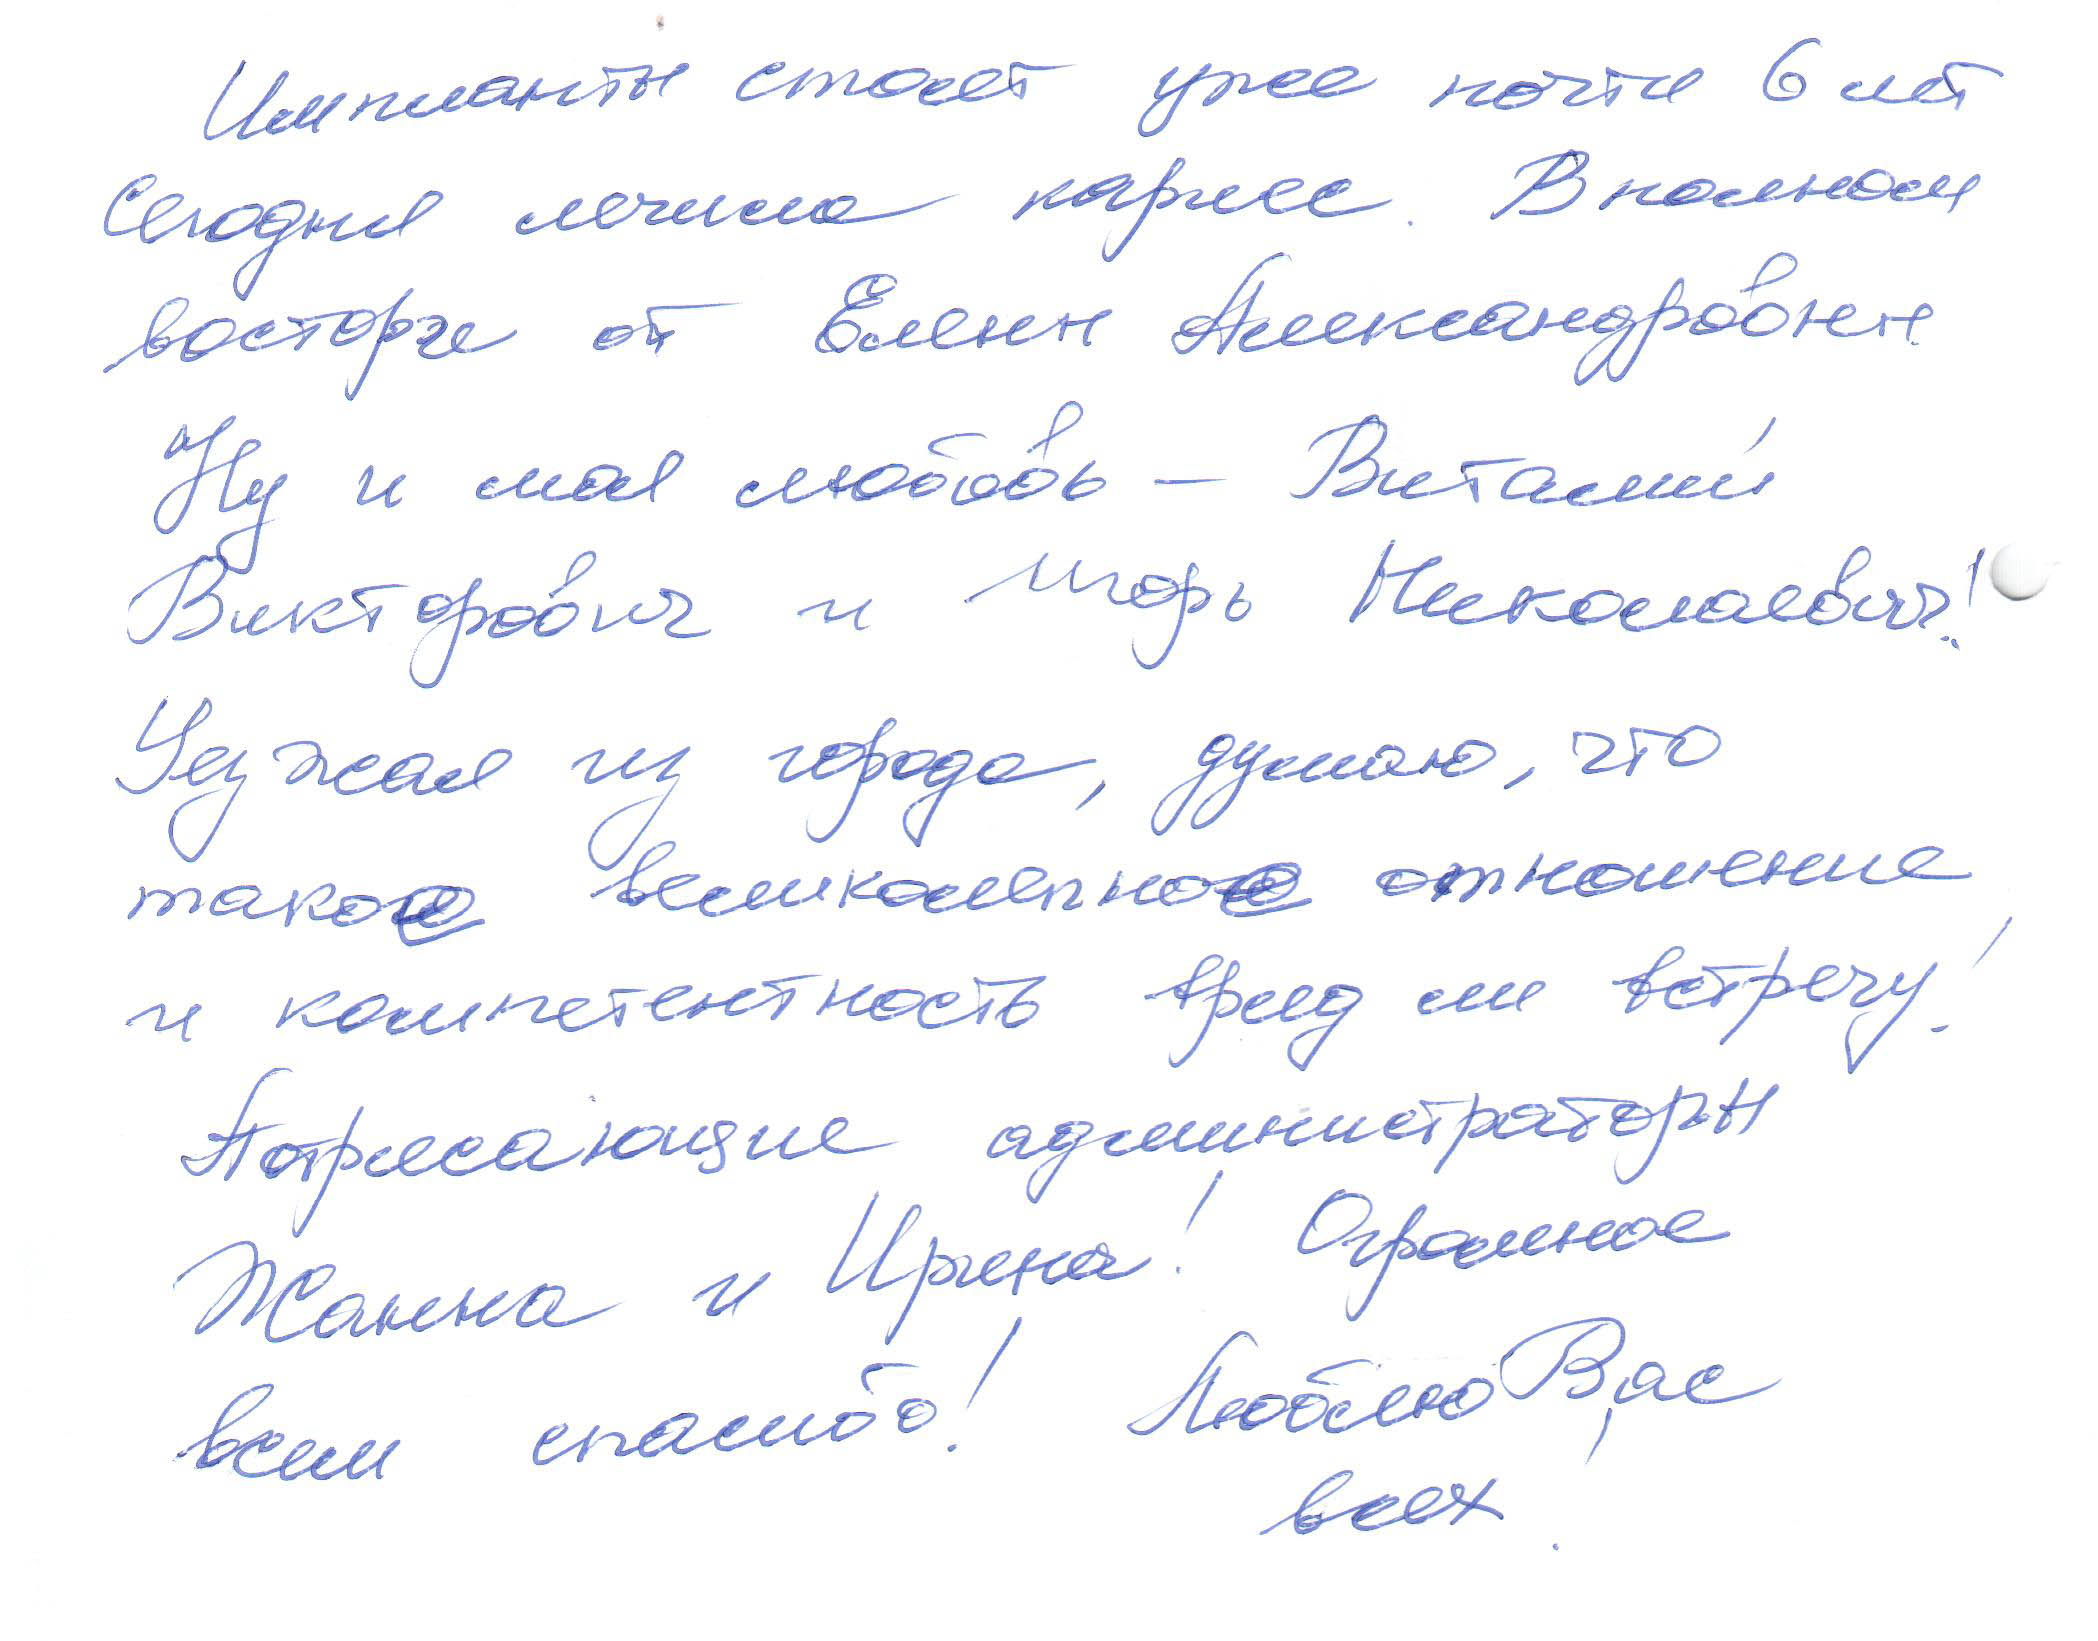 Импланты стоят уже почти 6 лет
Сегодня лечила кариес. В полном
восторге от Елены Александровны.
Ну и моя любовь – Виталий
Викторович и Игорь Николаевич!
Уезжая из города, думаю, что
такое великолепное отношение
и компетентность вряд ли встречу!
Потрясающие администраторы
Жанна и Ирина! Огромное
всем спасибо! Люблю Вас
всех!